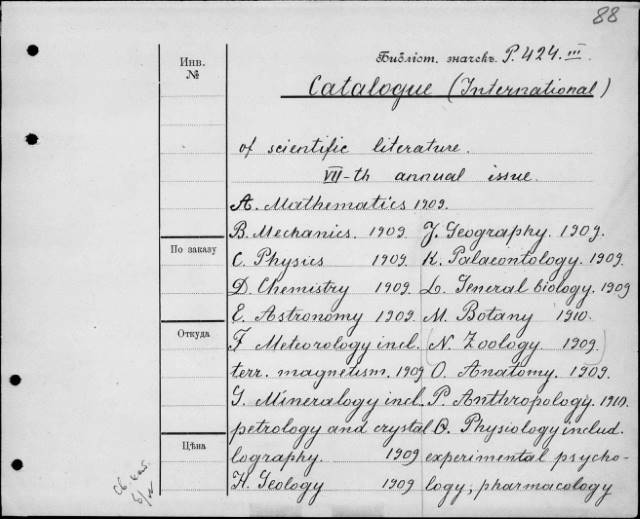 88
Инв.
№
Библіот. значекъ P. 424. III
Catalogue (International)
of scientific literature.
VII-th annual issue.
A. Mathematics 1909.
B. Mechanics. 1909
C. Physics 1909.
D. Chemistry 1909.
E. Astronomy 1909.
F Meteorology incl.
terr. magnetism. 1909
G. Mineralogy incl.
petrology and crystal
lography. 1909
H. Geology 1909
J. Geography. 1909.
K. Palaeontology. 1909.
L. General biology. 1909
M. Botany 1910.
(N. Zoology 1909.)
O. Anatomy. 1909.
P. Anthropology. 1910.
Q. Physiology includ.
experimental psycho-
logy, pharmacology
По заказу
Откуда
Цѣна